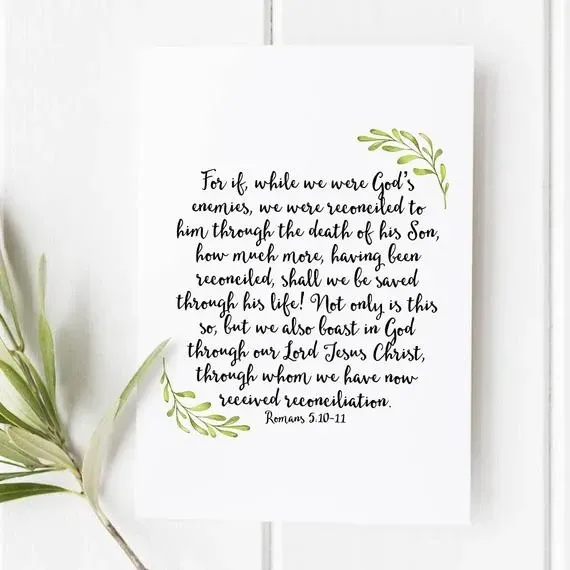 For if, while we were God's
enemies, we were reconciled to
him through the death of his Son,
how much more, having been
reconciled, shall we be saved
through his life! Not only is this
so, but we also boast in God
through our Lord Jesus Christ,
through whom we have now
received reconciliation.
Romans 5.10-11